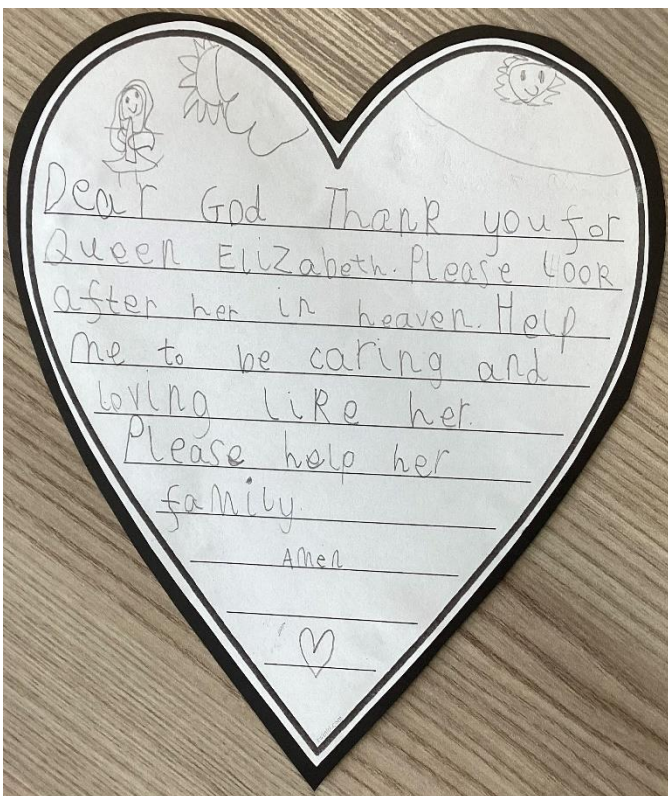 Dear God Thank you for
Queen Elizabeth. Please look
after her in heaven. Help
me to be caring and
loving like her.
Please help her
family.
Amen